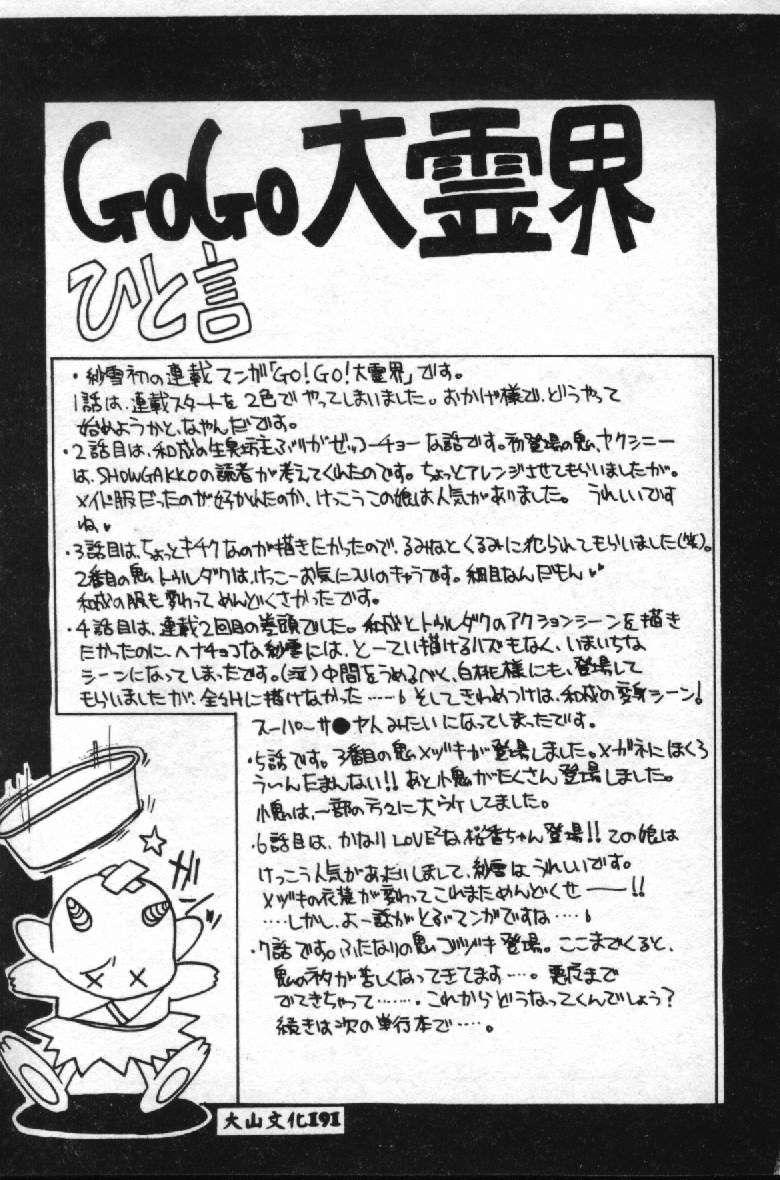 GoGo大霊界
ひと言
・紗雪初の連載マンガ「GO!GO!大霊界」です。
1話は、連載スタートを2色でやってしまいました。おかげ様で、どうやって
始めようかと、なやんだです。
・2話目は、和成の生臭坊主ぶりがゼッコーチョーな話です。初登場の鬼、ヤクシニー
は、SHOWGAKKOの読者が考えてくれたのです。ちょっとアレンジさせてもらいましたが。
メイド服だったのが好かれたのか、けっこうこの娘は人気がありました。 うれしいです
ね♥
・3話目は、ちょっとキチクなのが描きたかったので、るみねとくるみに犯られてもらいました(笑)。
2番目の鬼トゥルダクは、けっこーお気に入りのキャラです。細目なんだもん♥
和成の服も変わってめんどくさかったです。
・4話目は、連載2回目の巻頭でした。和成とトゥルダクのアクションシーンを描き
たかったのに、ヘナチョコな紗雪には、とーてい描けるハズもなく、いまいちな
シーンになってしまったです。(泣)中間をうめるべく、白桃様にも、登場して
もらいましたが、全々Hに描けなかった……。そしてきわめつけは、和成の変身シーン!
スーパーサ●ヤ人みたいになってしまったです。
・5話です。3番目の鬼メヅキが登場しました。メガネにほくろ
うぃんたまんない!!あと小鬼がたくさん登場しました。
小鬼は、一部の方々に大ウケしてました。
・6話目は、かなりLOVE²な、桜香ちゃん登場!!この娘は
けっこう人気があたいしまして、紗雪はうれしいです。
メヅキの衣装が変わってこれまためんどくせ――!!
……しかし、よー話がとぶマンガですな……。
・7話です。ふたなりの鬼ゴヅキ登場。ここまでくると、
鬼のネタが苦しくなってきてます…。悪魔まで
でてきちゃって……。これからどうなってくんでしょう?
続きは次の単行本で…。
大山文化191